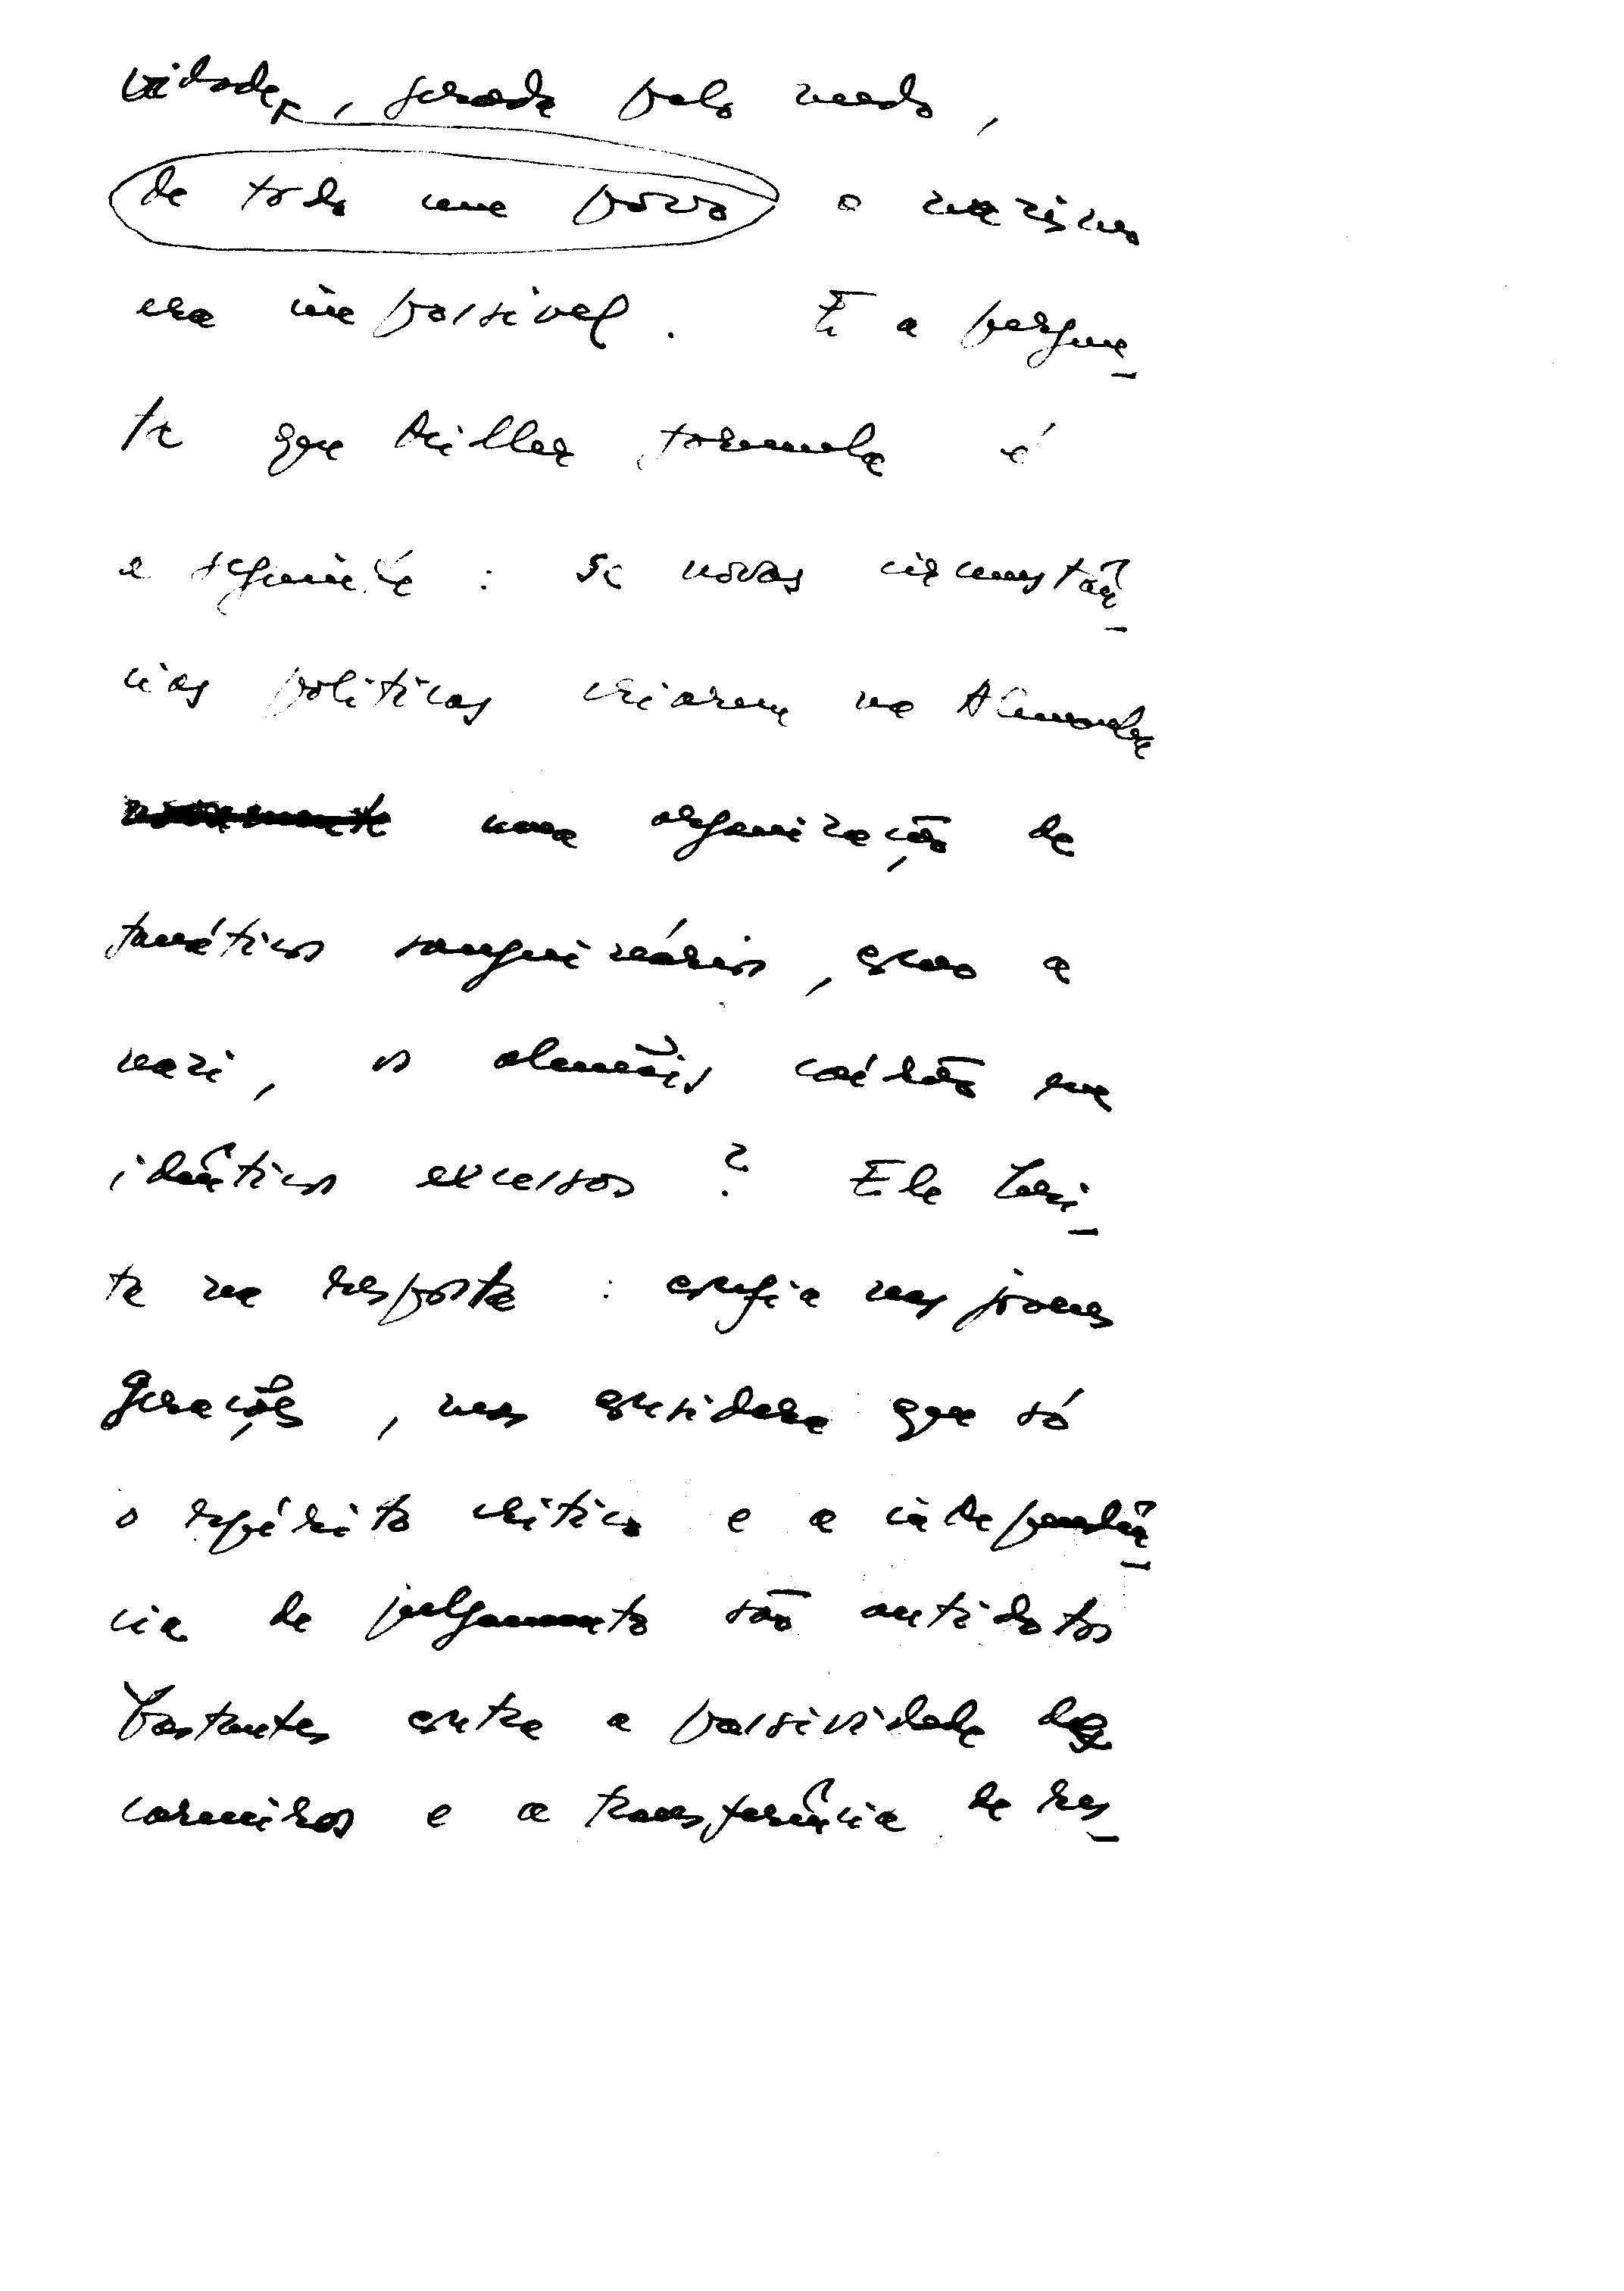 vidade, gerada pelo medo,
de todo um povo o nazismo
era impossível. E a pergun-
ta que Hiller formula é
a seguinte: se novas circunstân-
cias políticas criarem na Alemanha
novamente uma organização de
fanáticos sanguinários, como a
nazi, os alemães cairão em
idênticos excessos? Ele hesi-
ta na resposta: confia nas jovens
gerações, mas considera que só
o espírito crítico e a independên-
cia de julgamento são antídotos
bastantes contra a passividade de
carneiros e a transferência de res-